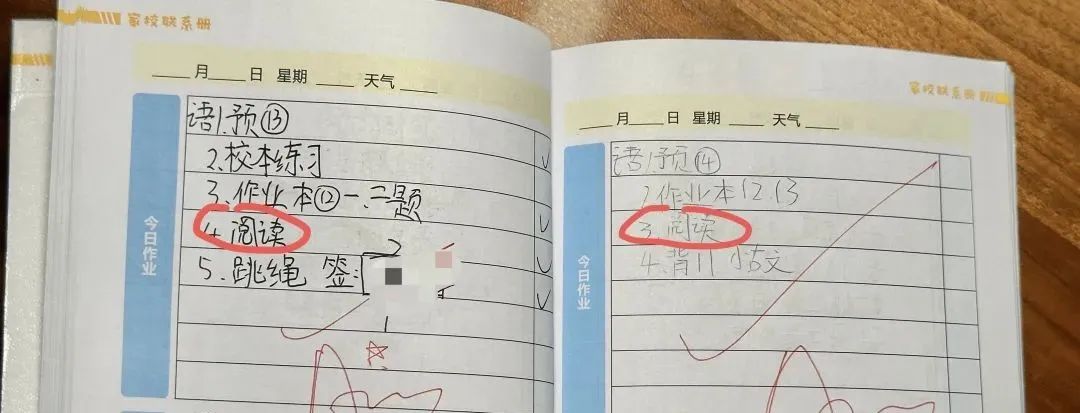 家校联系册
月 日 星期 天气
今日作业
语1.预⑬
2.校本练习
3.作业本⑫一.二题
4.阅读
5.跳绳 签:
2
1
家校联系册
月 日 星期 天气
今日作业
语1.预⑭
2.作业本12.13
3.阅读
4.背11 小古文